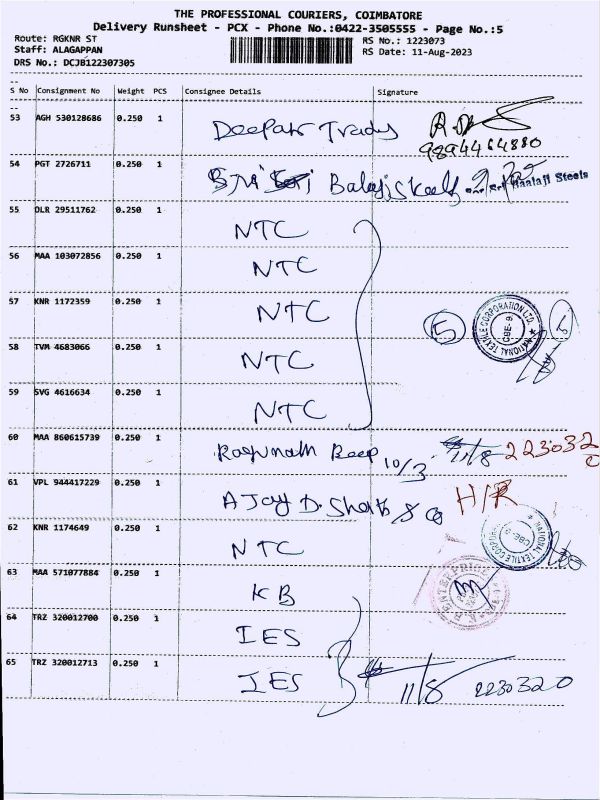 THE PROFESSIONAL COURIERS, COIMBATORE
Delivery Runsheet - PCX - Phone No.:0422-3505555 - Page No.:5
Route: RGKNR ST
RS No.: 1223073
Staff: ALAGAPPAN
RS Date: 11-Aug-2023
DRS No.: DCJB122307305
S No Consignment No Weight PCS Consignee Details Signature
53 AGH 530128686 0.250 1 Deepak Trady
9894464880
54 PGT 2726711 0.250 1 Sri Balaji Steels Sri Baalaji Steels
55 DLR 29511762 0.250 1 NTC
56 MAA 103072856 0.250 1 NTC
57 KNR 1172359 0.250 1 NTC 5 NATIONAL TEXTILE CORPORATION LTD. CBE-9 6
58 TVM 4683066 0.250 1 NTC
59 SVG 4616634 0.250 1 NTC
60 MAA 860615739 0.250 1 Ragunath Beep 10/3 11/8 223032
61 VPL 944417229 0.250 1 AJay D. Shah & Co H/R
62 KNR 1174649 0.250 1 NTC NATIONAL TEXTILE CORPOR CBE-9
63 MAA 571077884 0.250 1 KB
64 TRZ 320012700 0.250 1 IES
65 TRZ 320012713 0.250 1 IES 11/8 2230320